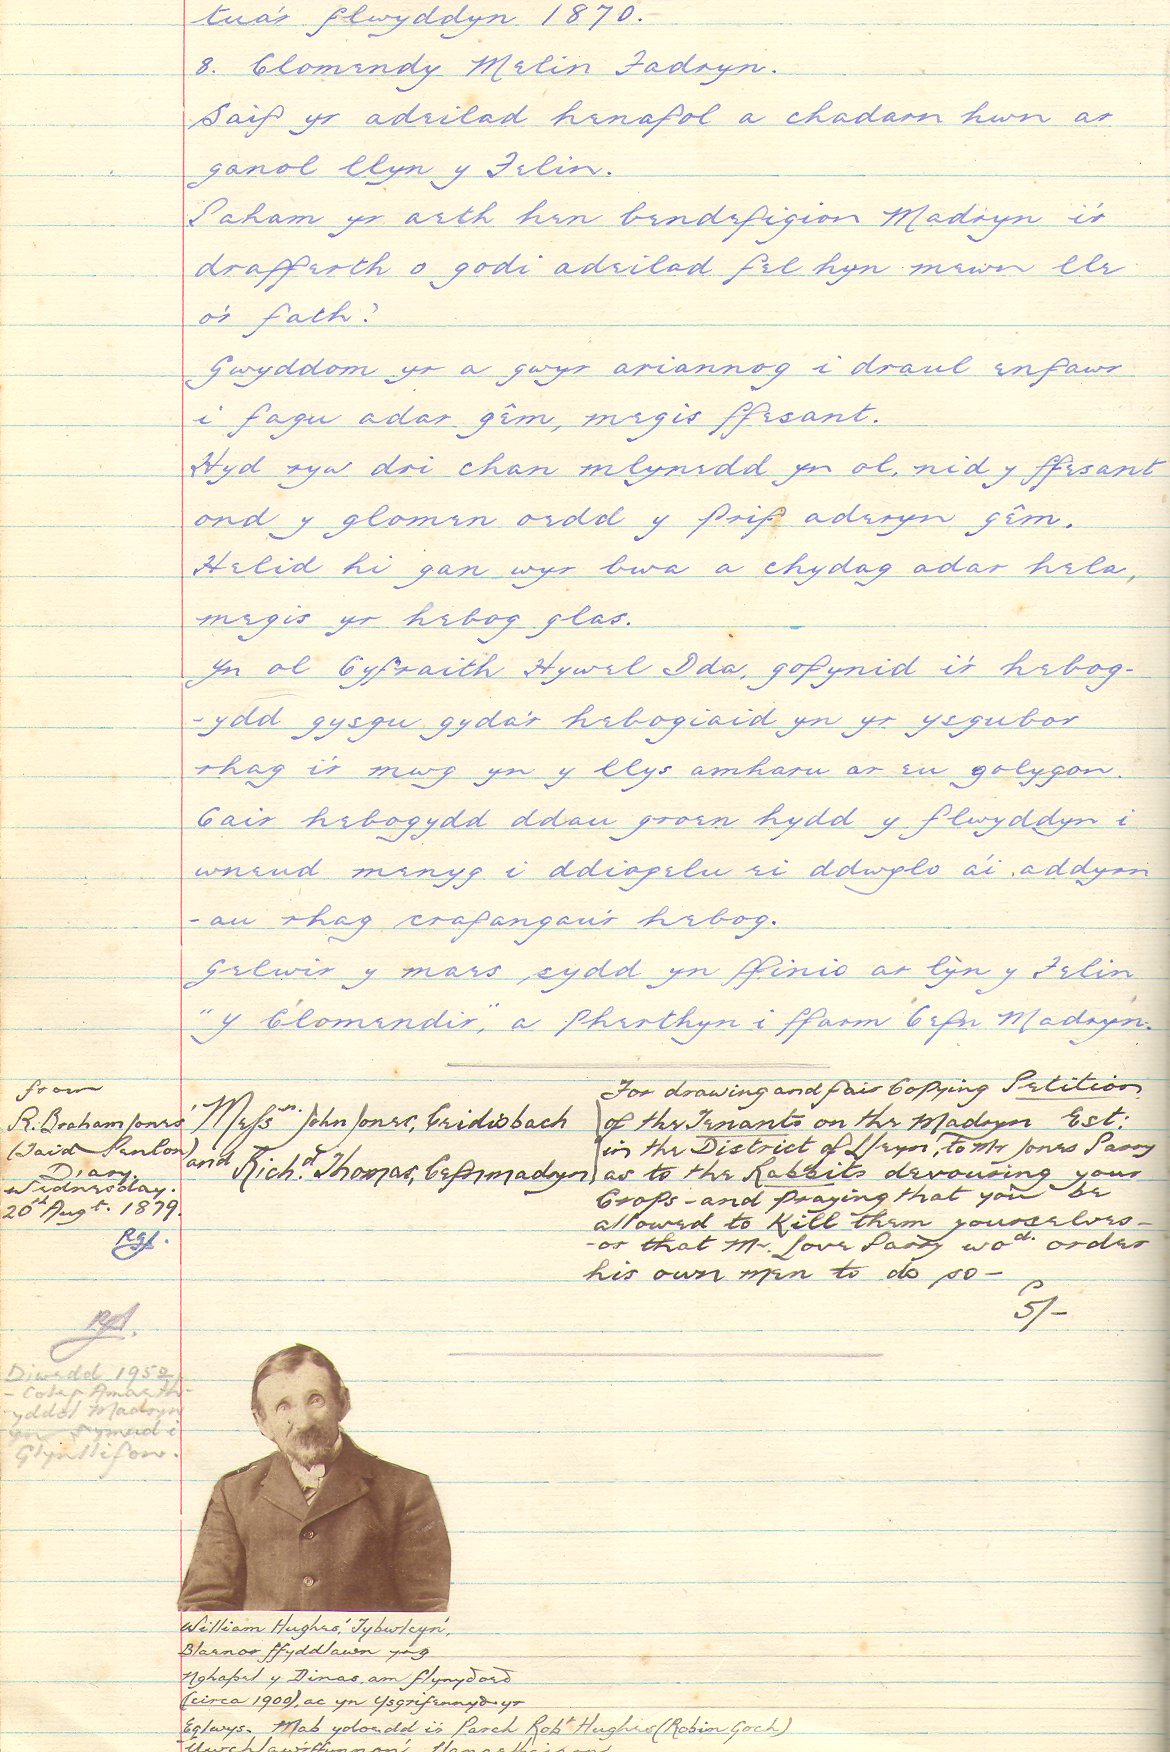 tua'r flwyddyn 1870.
8. Clomendy Melin Fadryn.
Saif yr adeilad henafol a chadarn hwn ar
ganol llyn y Felin.
Paham yr aeth hen bendefigion Madryn i'r
drafferth o godi adeilad fel hyn mewn lle
o'r fath?
Gwyddom yr a gwyr ariannog i draul enfawr
i fagu adar gêm, megis ffesant.
Hyd ryw dri chan mlynedd yn ol, nid y ffesant
ond y glomen oedd y prif aderyn gêm.
Helid hi gan wyr bwa a chydag adar hela,
megis yr hebog glas.
Yn ol Cyfraith Hywel Dda, gofynid i'r hebog-
-ydd gysgu gyda'r hebogiaid yn yr ysgubor
rhag i'r mwg yn y llys amharu ar eu golygon.
Cair hebogydd ddau groen hydd y flwyddyn i
wneud menyg i ddiogelu ei ddwylo a'i addyrn
-au rhag crafangau'r hebog.
Gelwir y maes sydd yn ffinio ar lyn y Felin
"Y Clomendir", a pherthyn i ffarm Cefn Madryn.
from
R. Graham Jones'
(Taid Penlon)
Diary.
Wednesday.
20th Augt. 1879.
RGJ.
Messrs. John Jones, Ceidiobach
and Richd. Thomas, Cefnmadryn
For drawing and fair Copying Petition
of the Tenants on the Madryn Est:
in the District of Lleyn, to Mr Jones Parry
as to the Rabbits devouring your
Crops - and praying that you be
allowed to Kill them yourselves -
- or that Mr. Love Parry wod. order
his own men to do so -
5/-
RGJ.
Diwedd 1952
- Coleg Amaeth-
yddol Madryn
yn symud i
Glynllifon.
William Hughes, 'Tybwlcyn',
Blaenor ffyddlawn yng
Nghapel y Dinas, am flynyddoedd
(circa 1900), ac yn Ysgrifennydd yr
Eglwys. Mab ydoedd i'r Parch Robt Hughes (Robin Goch)